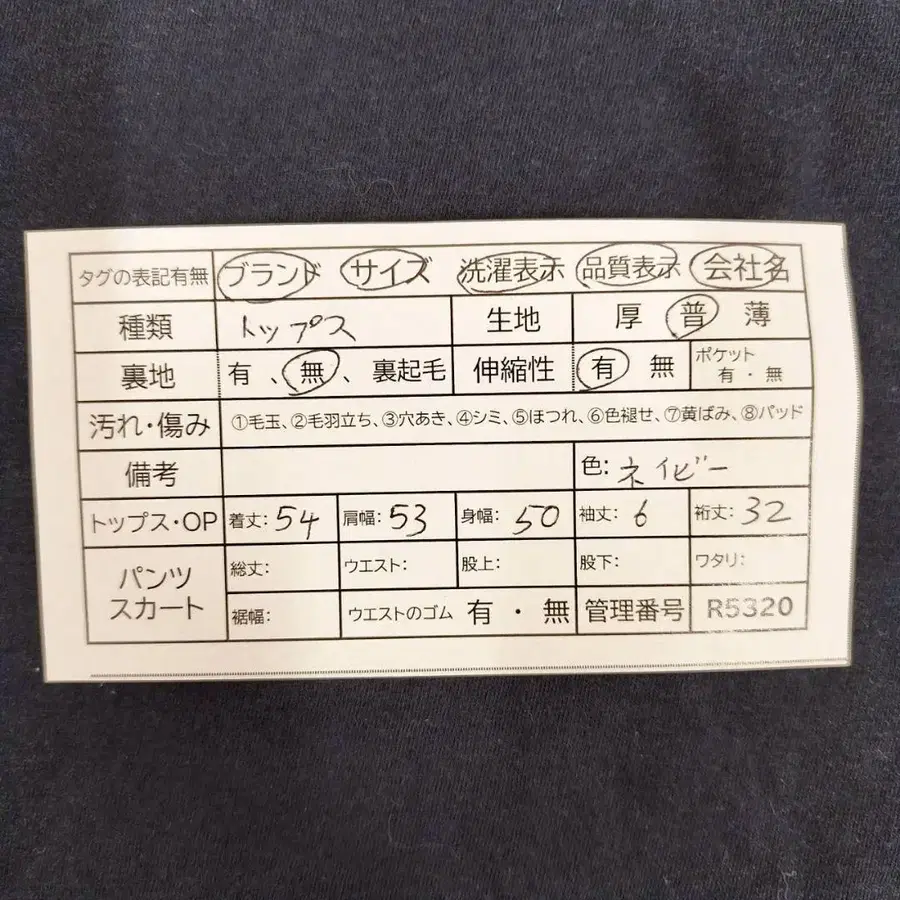 タグの表記有無 ブランド サイズ 洗濯表示 品質表示 会社名
種類 トップス 生地 厚 普 薄
裏地 有、無、裏起毛 伸縮性 有 無 ポケット 有・無
汚れ・傷み ①毛玉、②毛羽立ち、③穴あき、④シミ、⑤ほつれ、⑥色褪せ、⑦黄ばみ、⑧パッド
備考 色:ネイビー
トップス・OP 着丈:54 肩幅:53 身幅:50 袖丈:6 裄丈:32
パンツ スカート 総丈: ウエスト: 股上: 股下: ワタリ:
裾幅: ウエストのゴム 有・無 管理番号 R5320